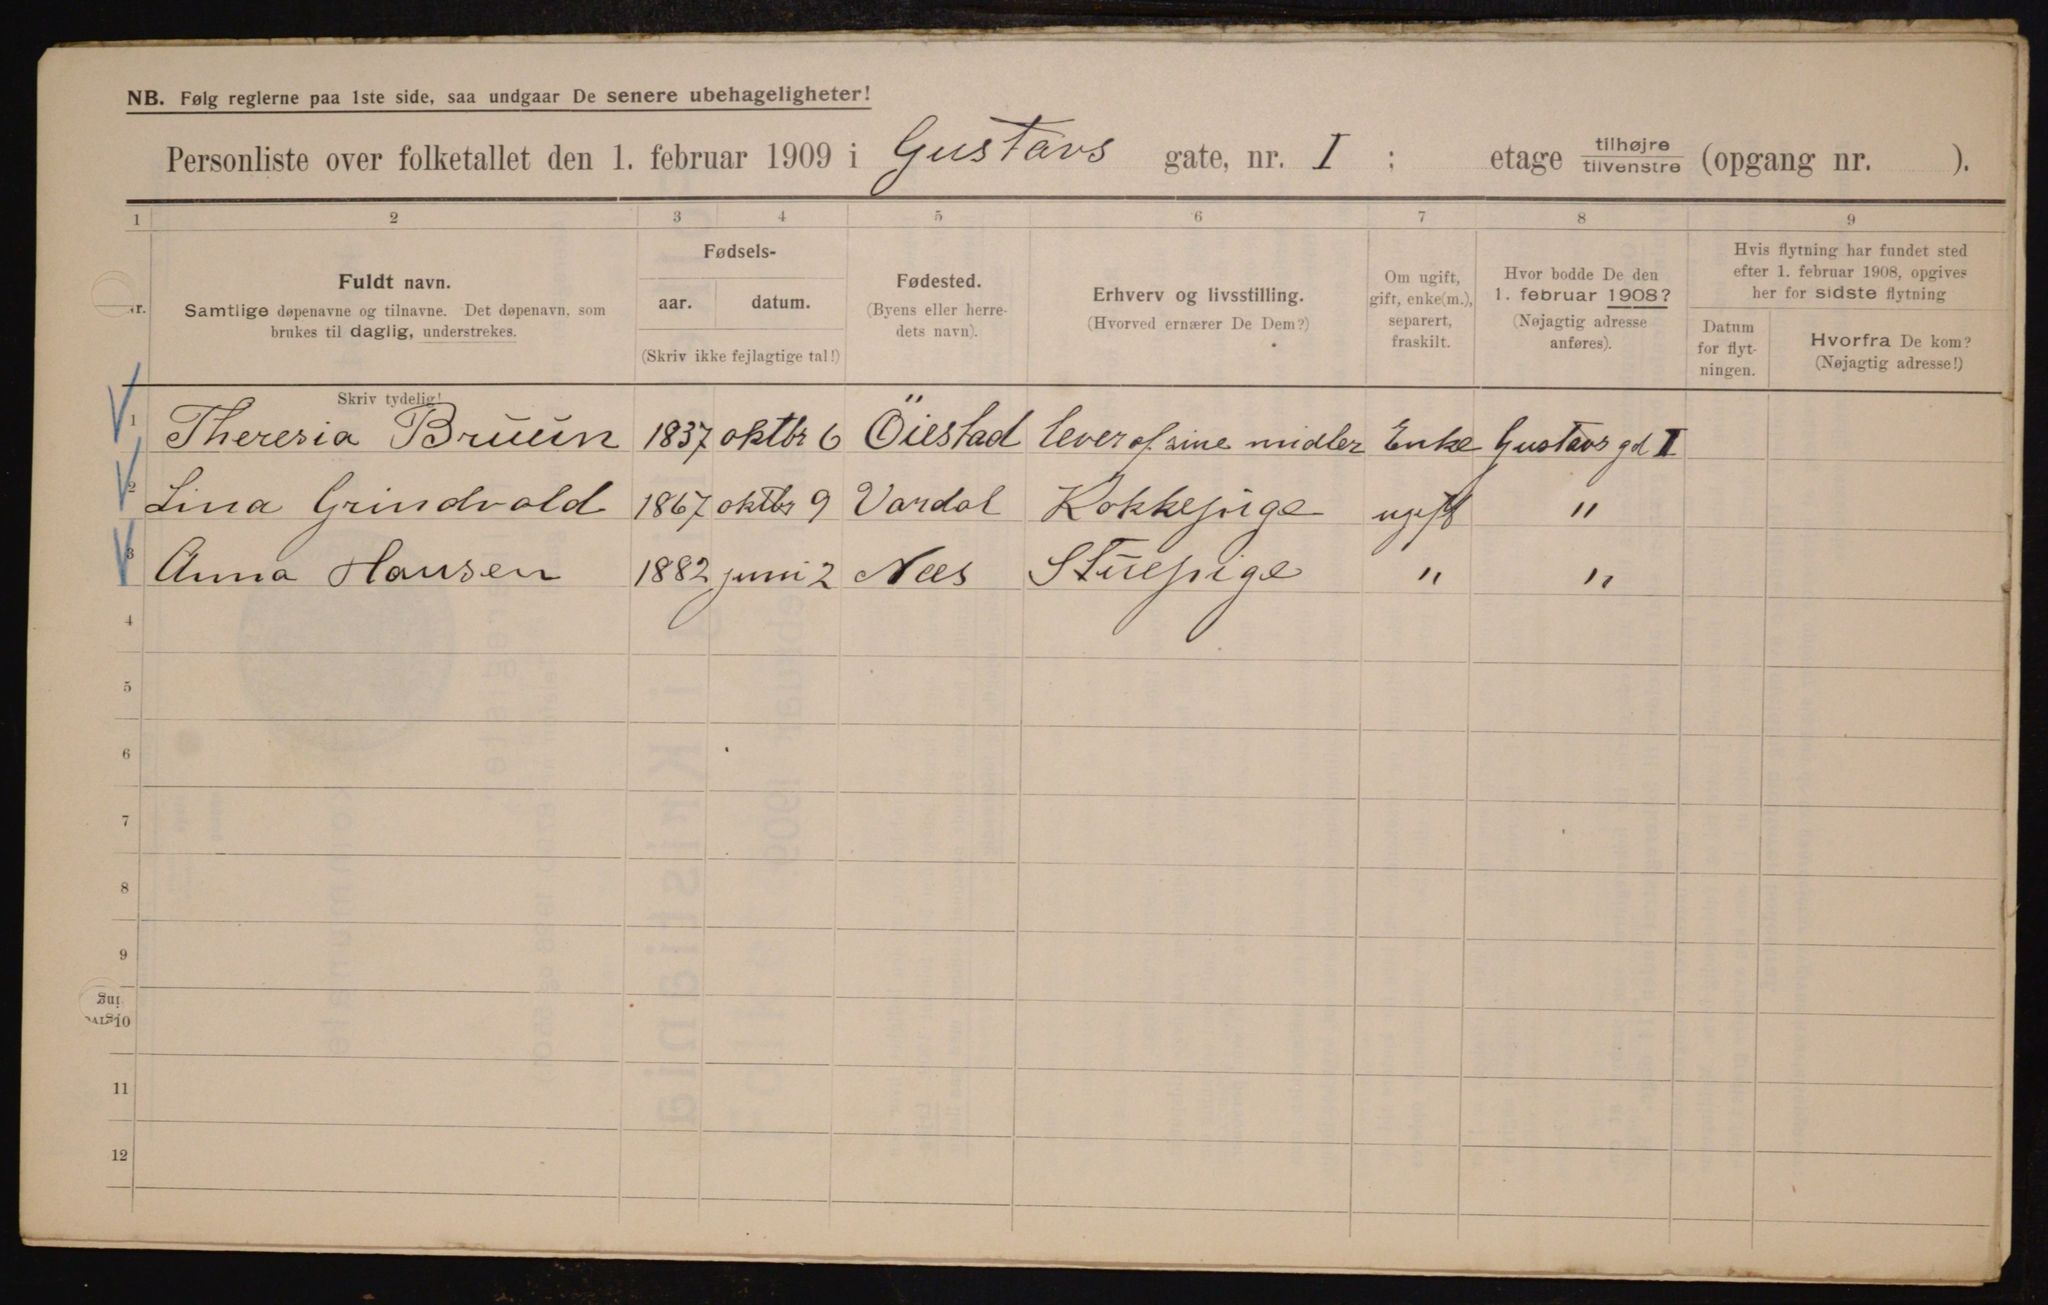 NB. Følg reglerne paa 1ste side, saa undgaar De senere ubehageligheter!
Personliste over folketallet den 1. februar 1909 i Gustavs gate, nr. I ; etage tilhøjre tilvenstre (opgang nr. ).
1 2 3 4 5 6 7 8 9
nr.
Fuldt navn.
Samtlige døpenavne og tilnavne. Det døpenavn, som
brukes til daglig, understrekes.
Fødsels-
aar. datum.
(Skriv ikke fejlagtige tal!)
Fødested.
(Byens eller herre-
dets navn).
Erhverv og livsstilling.
(Hvorved ernærer De Dem?)
Om ugift,
gift, enke(m.),
separert,
fraskilt.
Hvor bodde De den
1. februar 1908?
(Nøjagtig adresse
anføres).
Hvis flytning har fundet sted
efter 1. februar 1908, opgives
her for sidste flytning
Datum
for flyt-
ningen.
Hvorfra De kom?
(Nøjagtig adresse!)
Skriv tydelig!
1 Theresia Bruun 1837 oktbr 6 Öiestad lever af sine midler Enke Gustavs gd I
2 Lina Grindvold 1867 oktbr 9 Vardal Kokkepige ugift "
3 Anna Hansen 1882 juni 2 Nes Stuepige " "
4
5
6
7
8
9
10
11
12